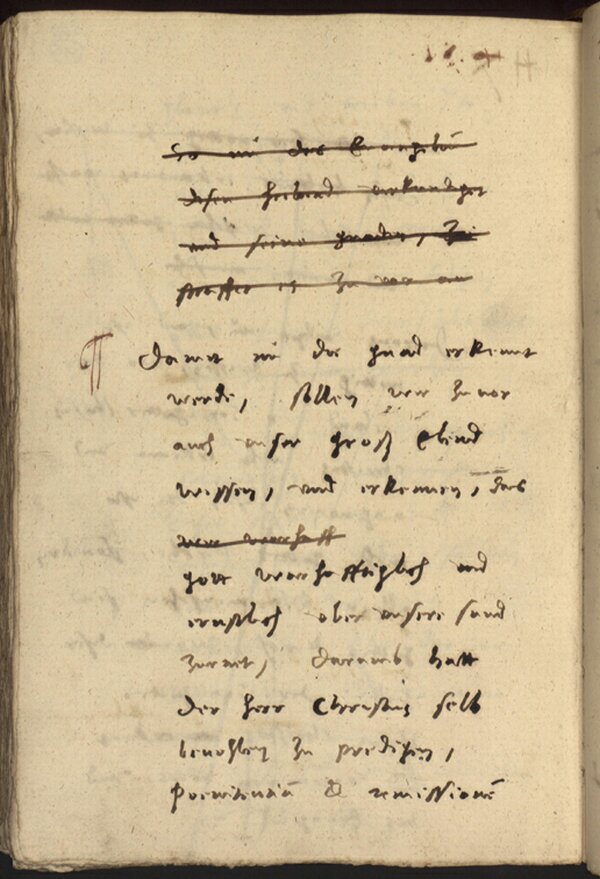 So nu das Euangelium
disen heiland verkundiget
und seine gnaden,
Damit nu die gnad erkennt
werde, sollen wir zuvor
auch unser groß Elend
wissen, und erkennen, das
wir warhaff
gott warhafftiglich und
ernstlich uber unsere sund
zurnet, darumb hatt
der herr Christus selb
bevohlen zu predigen,
Poenitentiā & remissionē